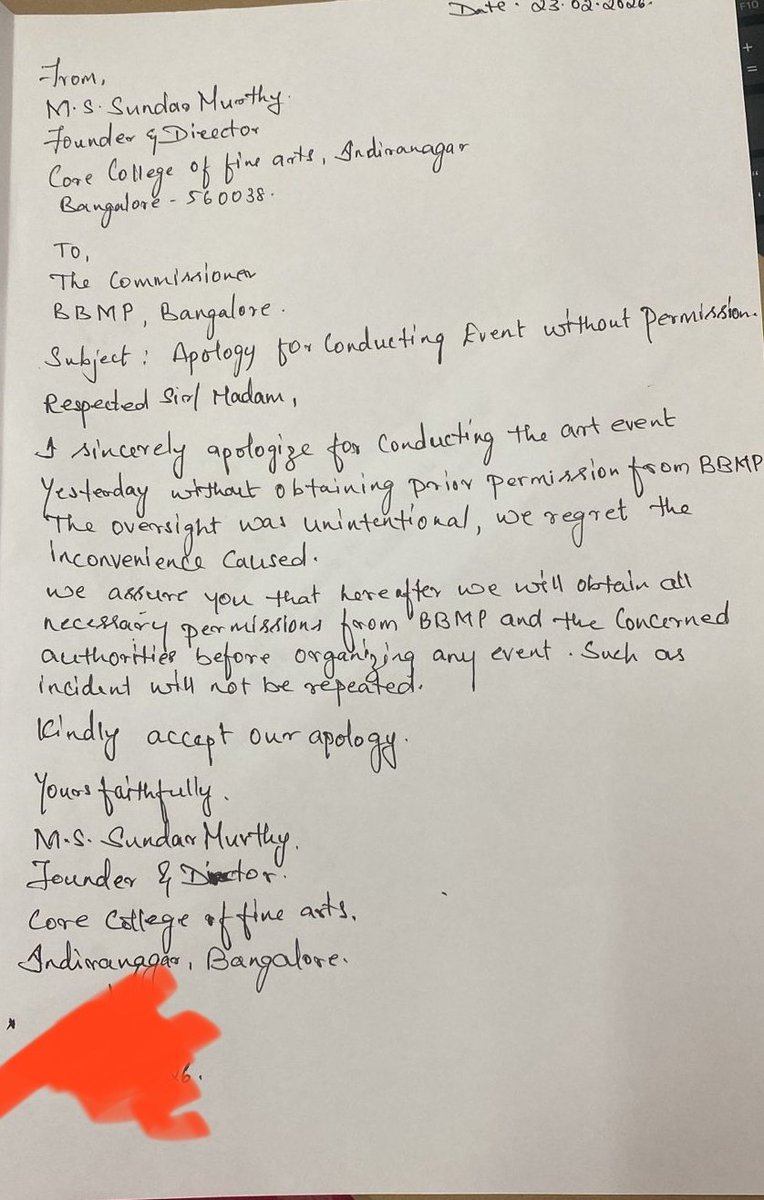 Date: 23.02.2026.
From,
M.S. Sundar Murthy.
Founder & Director
Core College of fine arts, Indiranagar
Bangalore - 560038.
To,
The Commissioner
BBMP, Bangalore.
Subject: Apology for Conducting Event without Permission.
Respected Sir/ Madam,
I sincerely apologize for conducting the art event
Yesterday without obtaining prior permission from BBMP
The oversight was unintentional, we regret the
inconvenience caused.
We assure you that hereafter we will obtain all
necessary permissions from BBMP and the concerned
authorities before organizing any event. Such as
incident will not be repeated.
Kindly accept our apology.
Yours faithfully.
M.S. Sundar Murthy.
Founder &
Core College of fine arts.
Indiranagar, Bangalore.
6.